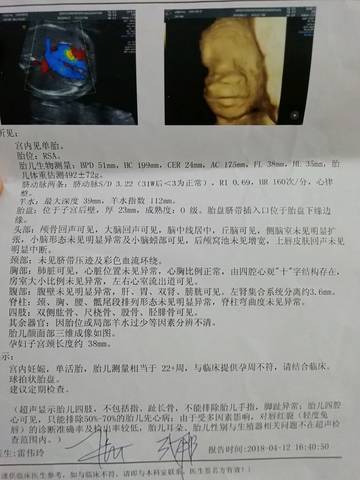 所见:
宫内见单胎。
胎位: RSA。
胎儿生物测量: BPD 51mm, HC 199mm, CER 24mm, AC 175mm, FL 38mm, HL 35mm, 胎
儿体重估测492±72g。
脐动脉两条: 脐动脉S/D 3.22 (31W后<3为正常), RI 0.69, HR 160次/分, 心律
整。
羊水: 最大深度 39mm, 羊水指数 112mm。
胎盘: 位于子宫后壁, 厚 23mm, 成熟度: 0 级。胎盘脐带插入口位于胎盘下缘边
缘。
头部: 颅骨回声可见, 大脑回声可见, 脑中线居中, 丘脑可见, 侧脑室未见明显扩
张, 小脑形态未见明显异常及小脑蚓部可见, 后颅窝池未见增宽, 上唇皮肤回声未见
明显中断。
颈部: 未见脐带压迹及彩色血流环绕。
胸部: 肺脏可见, 心脏位置未见异常, 心胸比例正常, 由四腔心观"十"字结构存在,
房室大小比例未见异常, 左右心室流出道可见。
腹部: 腹壁未见明显异常, 肝、胃、双肾、膀胱可见。左肾集合系统分离约3.6mm。
脊柱: 颈、胸、腰、骶尾段排列形态未见明显异常, 脊柱弯曲度未见异常。
四肢: 双侧肱骨、尺桡骨、股骨、胫腓骨可见。
其余器官: 因胎位或局部羊水过少等因素分辨不清。
胎儿颜面部三维成像如图。
孕妇子宫颈长度约 38mm。
示:
宫内妊娠, 单活胎, 胎儿测量相当于 22+周, 与临床提供孕周不符, 请结合临床。
球拍状胎盘。
建议定期检查。
(超声显示胎儿四肢, 不包括指, 趾长骨, 不能排除胎儿手指, 脚趾异常; 胎儿四腔
心可见, 只能排除50%-70%的胎儿先心病; 由于受多因素影响, 对唇红裂 (轻度兔
唇) 的诊断准确率及检出率较低, 胎儿耳朵、胎儿性别与生殖器相关问题不在超声检
查范围内。)
医生: 雷伟玲
报告时间: 2018-04-12 16:40:50